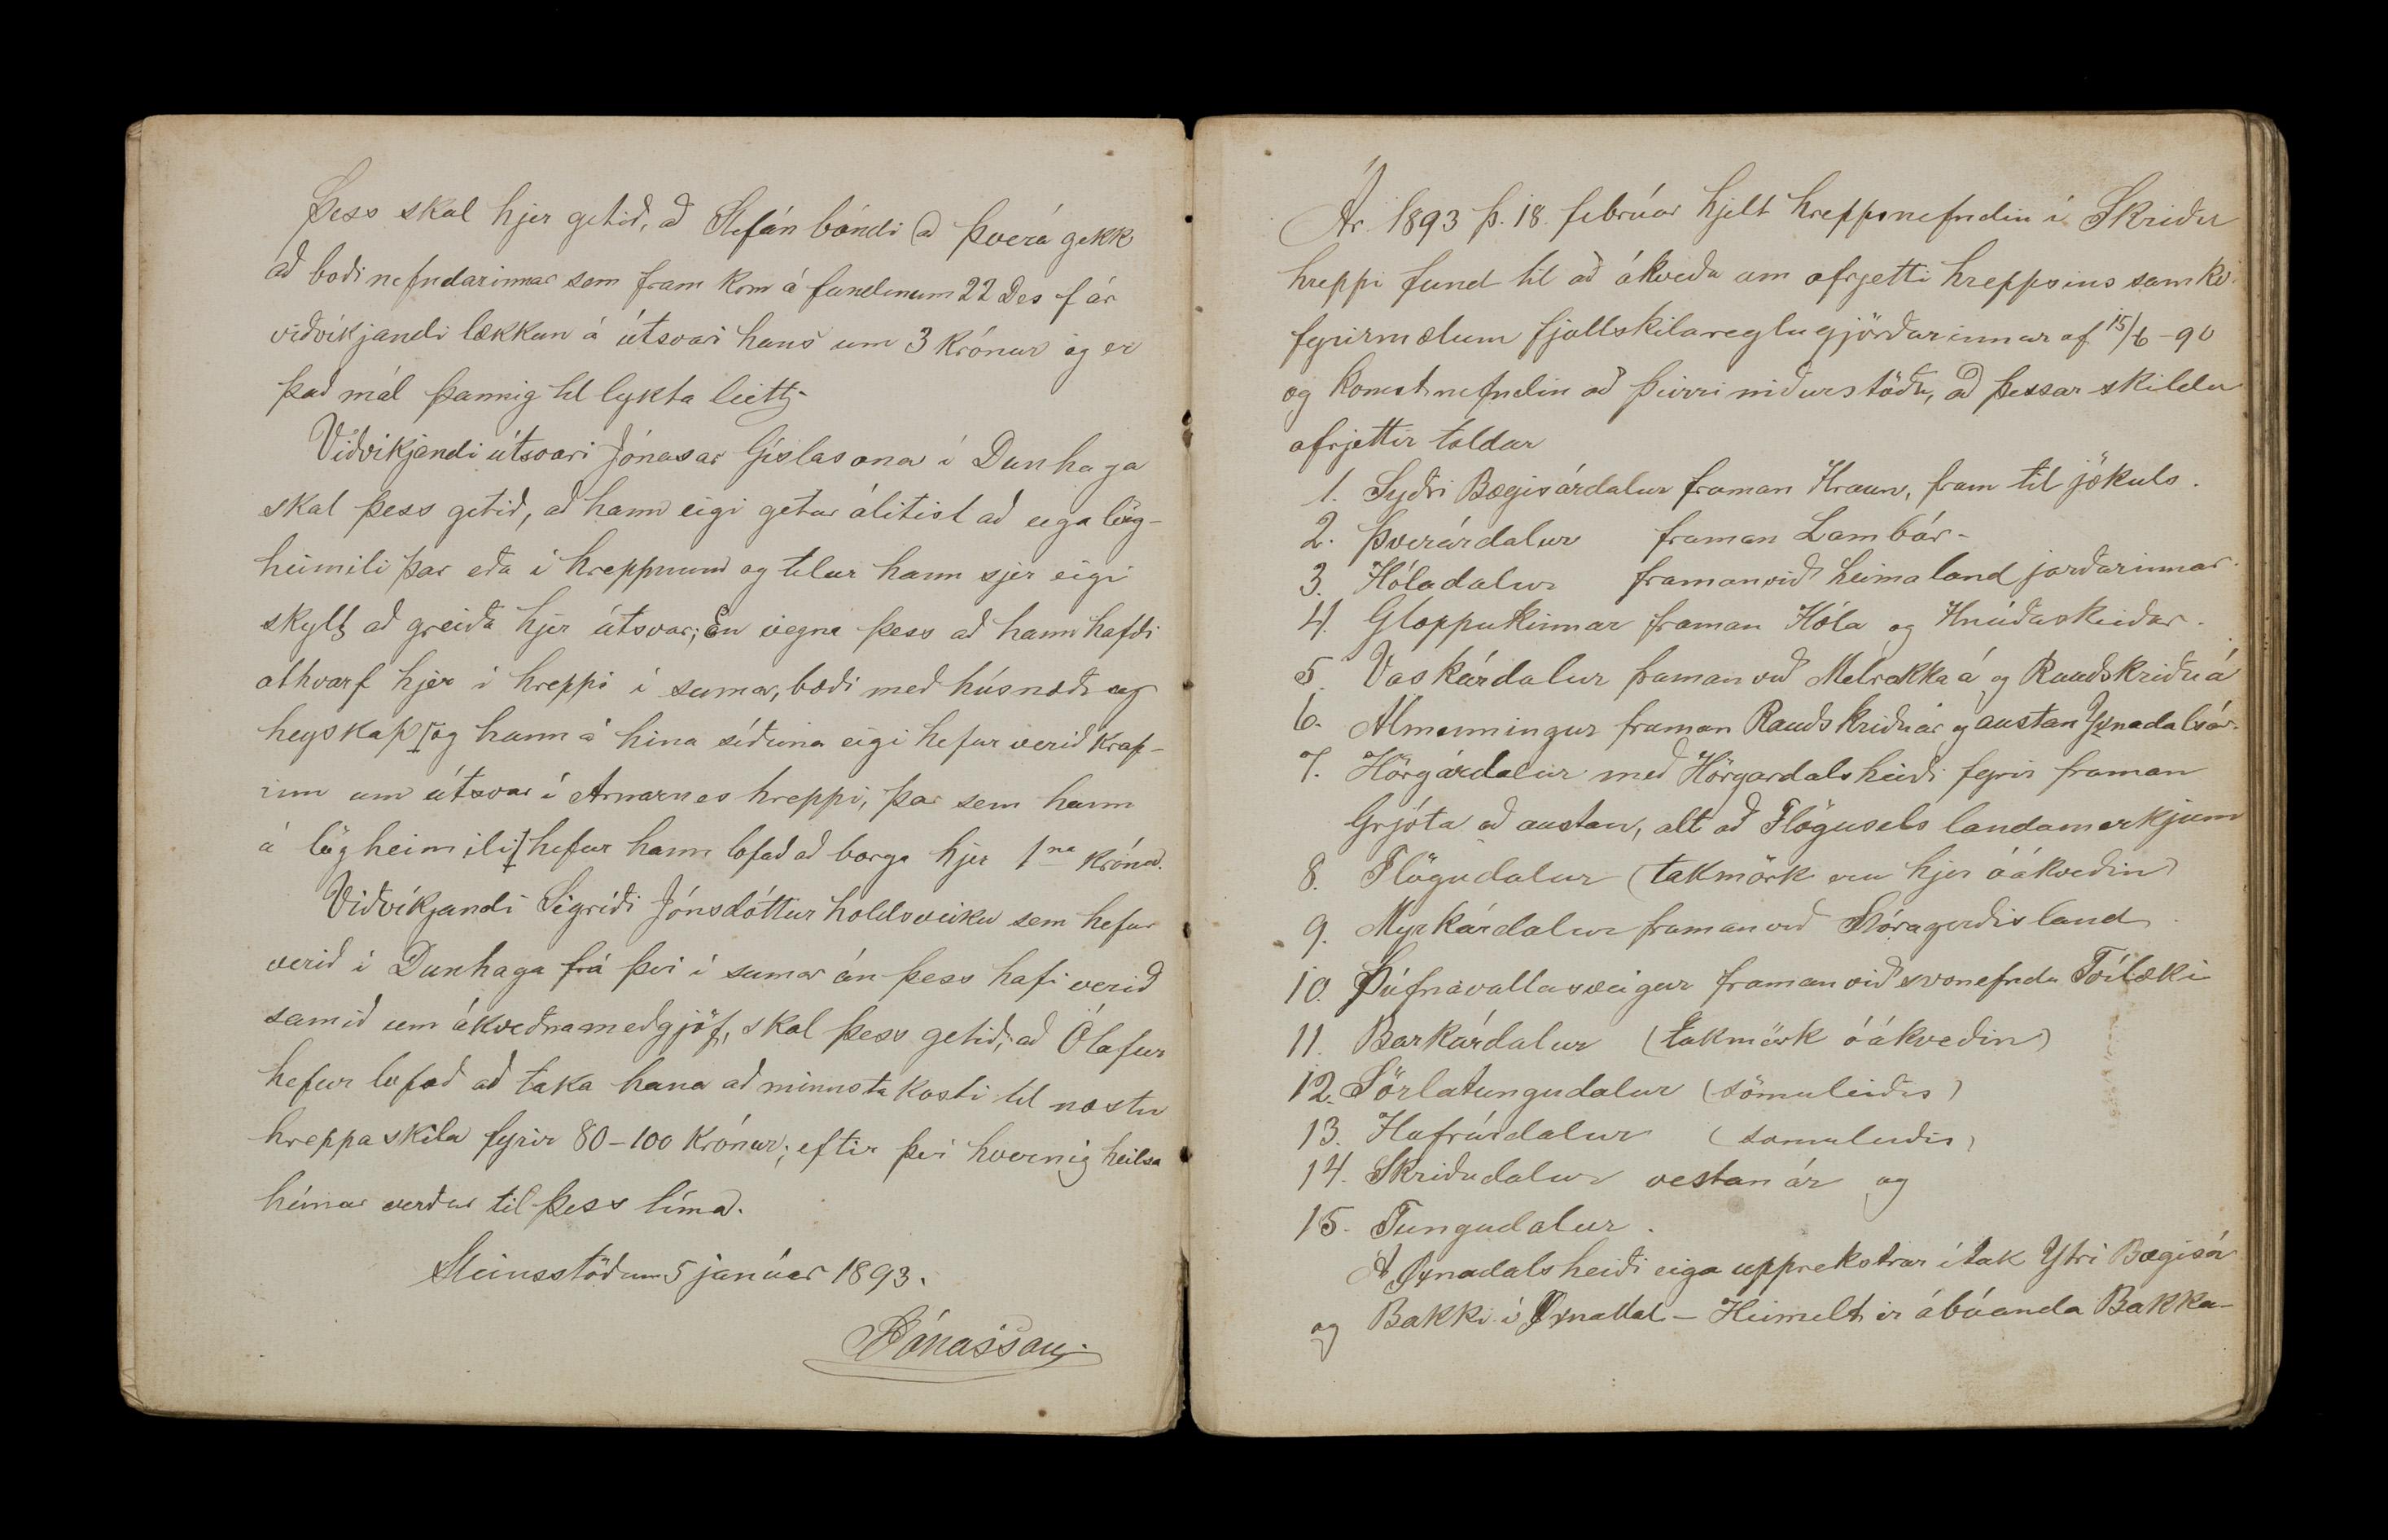 Þess skal hjer getið, að Stefán bóndi á Þverá gekk
að boði nefndarinnar sem fram kom á fundinum 22 Des f ár
viðvíkjandi lækkun á útsvari hans um 3 krónur og er
það mál þannig til lykta leitt.
Viðvíkjandi útsvari Jónasar Gíslasonar í Dunhaga
skal þess getið, að hann eigi getur álitist að eiga lög-
heimili þar eða í hreppnum og telur hann sjer eigi
skylt að greiða hjer útsvar; En vegna þess að hann hafði
athvarf hjer í hreppi í sumar, bæði með húsnæði og
heyskap [og hann á hina síðuna eigi hefur verið kraf-
inn um útsvar í Arnarnes hreppi, þar sem hann
á lögheimili] hefur hann lofað að borga hjer 1na krónu.
Viðvíkjandi Sigríði Jónsdóttur holdsveiku sem hefur
verið í Dunhaga frá því í sumar án þess hafi verið
samið um ákveðna meðgjöf, skal þess getið, að Ólafur
hefur lofað að taka hana að minnsta kosti til næstu
hreppaskila fyrir 80-100 krónur; eftir því hvernig heilsa
hennar verður til þess tíma.
Steinsstöðum 5 janúar 1893.
Jónasson
Ár 1893 þ. 18. febrúar hjelt hreppsnefndin í Skriðu
hreppi fund til að ákveða um afrjetti hreppsins samkv.
fyrirmælum fjallskilareglugjörðarinnar af 15/6 -90
og komst nefndin að þeirri niðurstöðu, að þessar skildu
afrjettir taldar
1. Syðri Bægisárdalur framan Hraun, fram til jökuls.
2. Þverárdalur framan Lambár-
3. Hóladalur framan við heimaland jarðarinnar.
4. Gloppukinnar framan Hóla og Hnúðaskeiðar.
5. Vaskárdalur framan við Melrakkaá og Rauðskriðuá
6. Almenningur framan Rauðskriðuár og austan Yxnadalsár.
7. Hörgárdalur með Hörgardalsheiði fyrir framan
Grjóta að austan, alt að Flögusels landamerkjum
8. Flögudalur (takmörk eru hjer óákveðin)
9. Myrkárdalur framan við Stóragerðisland
10. Þúfnavallasveigur framan við svonefnda Tvílæki
11. Barkárdalur (takmörk óákveðin)
12. Sörlatungudalur (sömuleiðis)
13. Hafrárdalur (sömuleiðis)
14. Skriðudalur vestan ár og
15. Tungudalur.
Á Yxnadalsheiði eiga upprekstrar ítak Ytri Bægisá
og Bakki í Yxnadal - Heimelt er ábúanda Bakka-